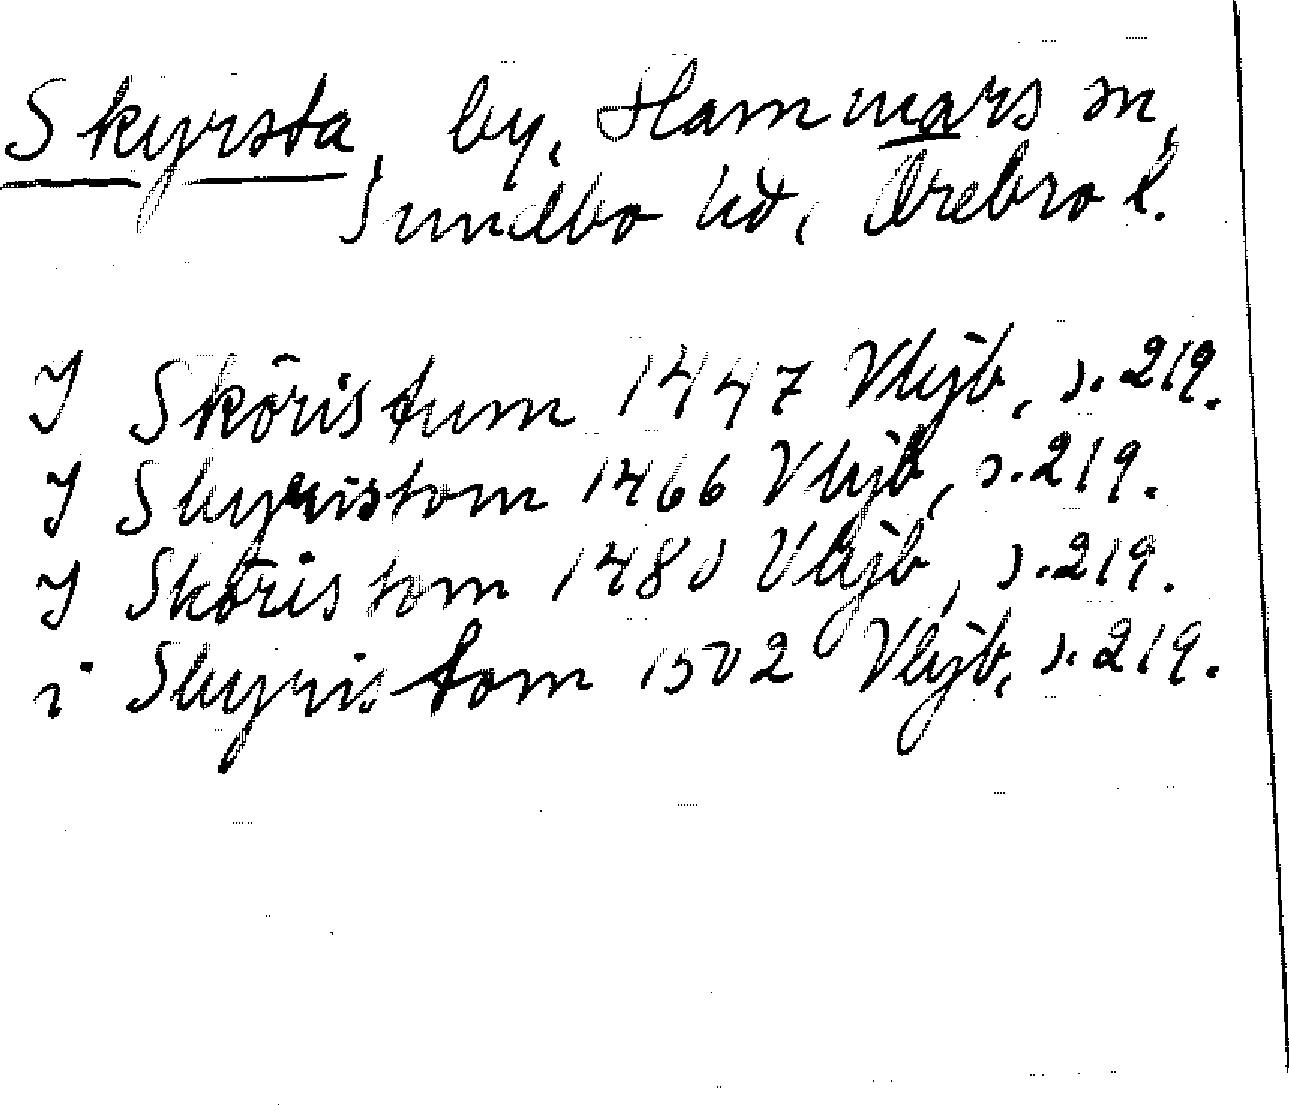 Skyrsta, by, Hammars sn,
Sundbo hd, Örebro l.
I Sköristum 1447 Vkljb, s. 219.
I Skyristom 1466 Vkljb, s. 219.
I Sköristom 1480 Vkljb, s. 219.
i Skyristom 1502 Vkljb, s. 219.